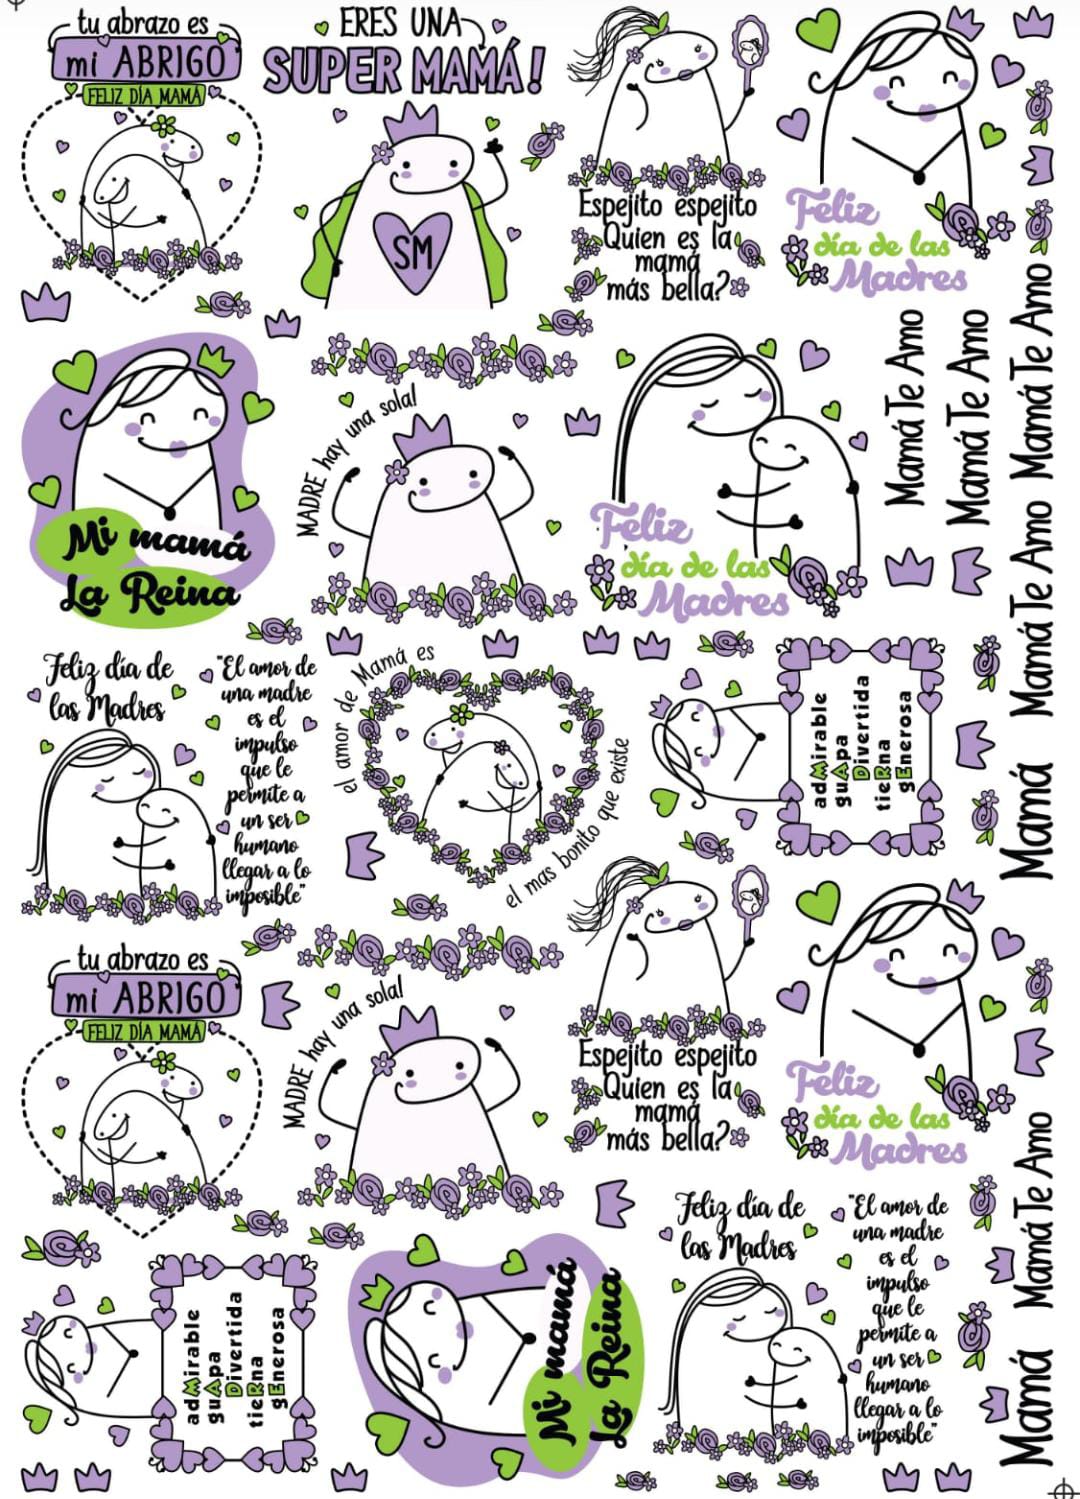 tu abrazo es
mi ABRIGO
FELIZ DÍA MAMÁ
ERES UNA
SUPER MAMÁ!
SM
Espejito espejito
Quien es la
mamá
más bella?
Feliz
día de las
Madres
Mi mamá
La Reina
MADRE hay una sola!
Feliz
día de las
Madres
Mamá Te Amo
Mamá Te Amo
Mamá Te Amo
Mamá Te Amo
Mamá
Feliz día de
las Madres
"El amor de
una madre
es el
impulso
que le
permite a
un ser
humano
llegar a lo
imposible"
el amor de Mamá es
el mas bonito que existe
adMirable
guApa
Divertida
tieRna
gEnerosa
tu abrazo es
mi ABRIGO
FELIZ DÍA MAMÁ
MADRE hay una sola!
Espejito espejito
Quien es la
mamá
más bella?
Feliz
día de las
Madres
Mamá Te Amo
Mamá
adMirable
guApa
Divertida
tieRna
gEnerosa
Mi mamá
La Reina
Feliz día de
las Madres
"El amor de
una madre
es el
impulso
que le
permite a
un ser
humano
llegar a lo
imposible"